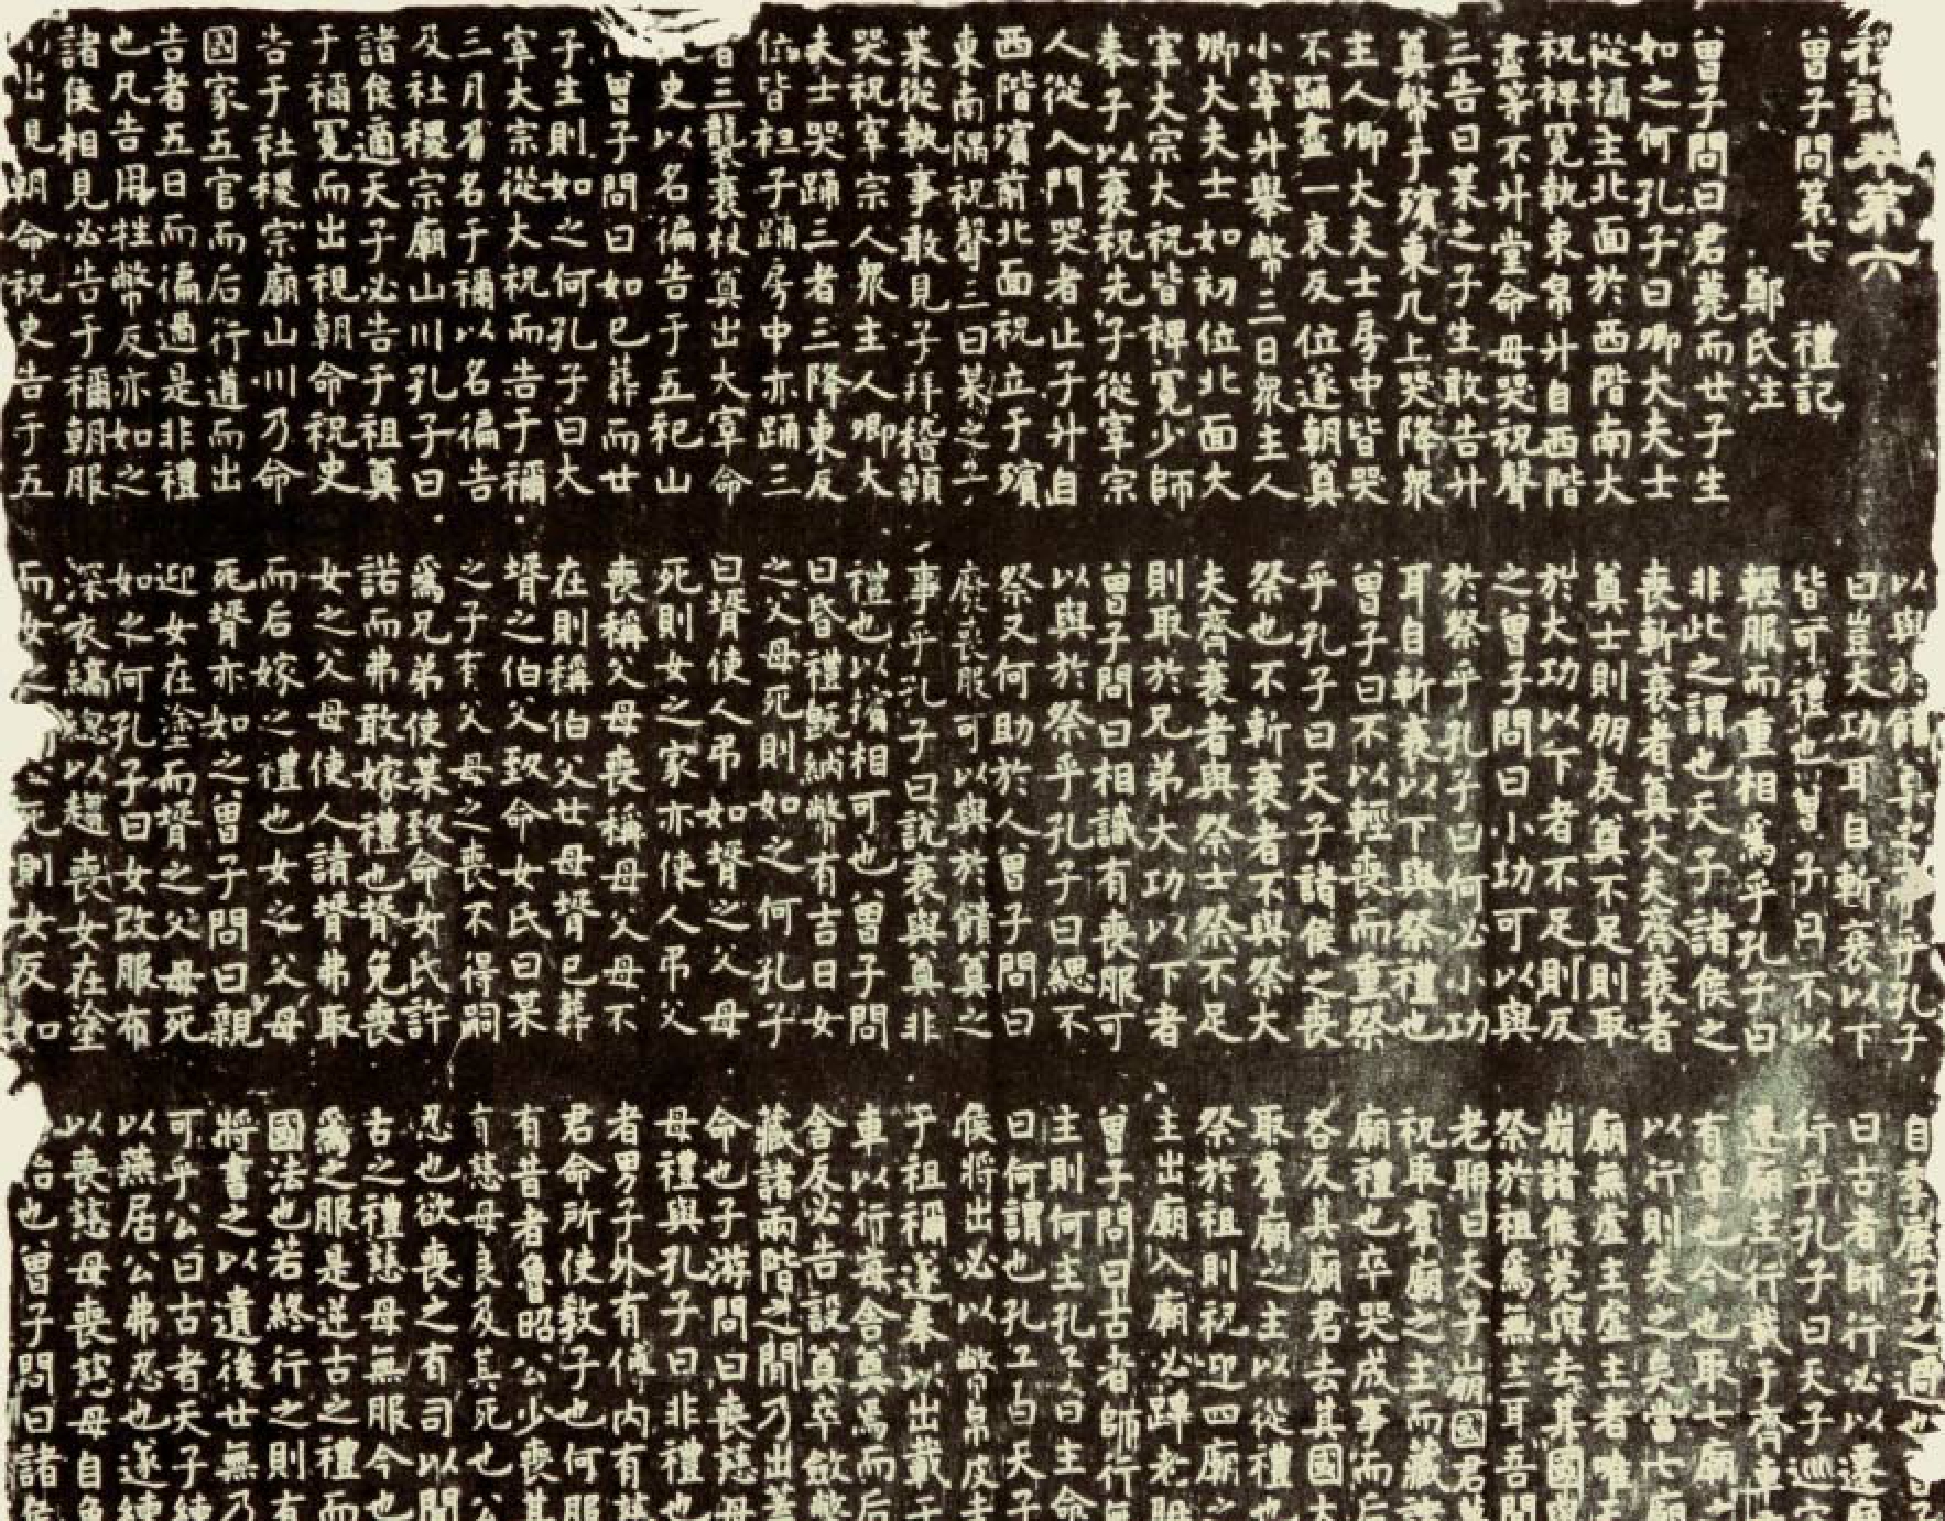 禮記卷第六
曾子問第七 禮記
鄭氏注
曾子問曰君薨而世子生
如之何孔子曰卿大夫士
從攝主北面於西階南大
祝裨冕執束帛升自西階
盡等不升堂命毋哭祝聲
三告曰某之子生敢告升
奠幣于殯東几上哭降眾
主人卿大夫士房中皆哭
不踊盡一哀反位遂朝奠
小宰升舉幣三日眾主人
卿大夫士如初位北面大
宰大宗大祝皆裨冕少師
奉子以衰祝先子從宰宗
人從入門哭者止子升自
西階殯前北面祝立于殯
東南隅祝聲三曰某之子
某從執事敢見子拜稽顙
哭祝宰宗人眾主人卿大
夫士哭踊三者三降東反
位皆袒子踊房中亦踊三
者三襲衰杖奠出大宰命
祝史以名徧告于五祀山
曾子問曰如已葬而世
子生則如之何孔子曰大
宰大宗從大祝而告于禰
三月乃名于禰以名徧告
及社稷宗廟山川孔子曰
諸侯適天子必告于祖奠
于禰冕而出視朝命祝史
告于社稷宗廟山川乃命
國家五官而后行道而出
告者五日而徧過是非禮
也凡告用牲幣反亦如之
諸侯相見必告于禰朝服
出視朝命祝史告于五
以與於饋奠之事乎孔子
曰豈大功耳自斬衰以下
皆可禮也曾子曰不以
輕服而重相為乎孔子曰
非此之謂也天子諸侯之
喪斬衰者奠大夫齊衰者
奠士則朋友奠不足則取
於大功以下者不足則反
之曾子問曰小功可以與
於祭乎孔子曰何必小功
耳自斬衰以下與祭禮也
曾子曰不以輕喪而重祭
乎孔子曰天子諸侯之喪
祭也不斬衰者不與祭大
夫齊衰者與祭士祭不足
則取於兄弟大功以下者
曾子問曰相識有喪服可
以與於祭乎孔子曰緦不
祭又何助於人曾子問曰
廢喪服可以與於饋奠之
事乎孔子曰說衰與奠非
禮也以擯相可也曾子問
曰昏禮既納幣有吉日女
之父母死則如之何孔子
曰壻使人弔如壻之父母
死則女之家亦使人弔父
喪稱父母喪稱母父母不
在則稱伯父世母壻已葬
壻之伯父致命女氏曰某
之子有父母之喪不得嗣
為兄弟使某致命女氏許
諾而弗敢嫁禮也壻免喪
女之父母使人請壻弗取
而后嫁之禮也女之父母
死壻亦如之曾子問曰親
迎女在塗而壻之父母死
如之何孔子曰女改服布
深衣縞總以趨喪女在塗
而女之父母死則女反如
自季康子之過也曾子
曰古者師行必以遷廟
行乎孔子曰天子巡守
遷廟主行載于齊車
有尊也今也取七廟之
以行則失之矣當七廟
廟無虛主虛主者唯天
崩諸侯薨與去其國與
祭於祖為無主耳吾聞
老聃曰天子崩國君薨
祝取羣廟之主而藏諸
廟禮也卒哭成事而后
各反其廟君去其國大
取羣廟之主以從禮也
祭於祖則祝迎四廟之
主出廟入廟必蹕老聃
曾子問曰古者師行無
主則何主孔子曰主命
曰何謂也孔子曰天子
侯將出必以幣帛皮圭
于祖禰遂奉以出載于
車以行每舍奠焉而后
舍反必告設奠卒斂幣
藏諸兩階之間乃出蓋
命也子游問曰喪慈母
母禮與孔子曰非禮也
者男子外有傅內有慈
君命所使教子也何服
有昔者魯昭公少喪其
有慈母良及其死也公
忍也欲喪之有司以聞
古之禮慈母無服今也
為之服是逆古之禮而
國法也若終行之則有
將書之以遺後世無乃
可乎公曰古者天子練
以燕居公弗忍也遂練
以喪慈母喪慈母自魯
始也曾子問曰諸侯